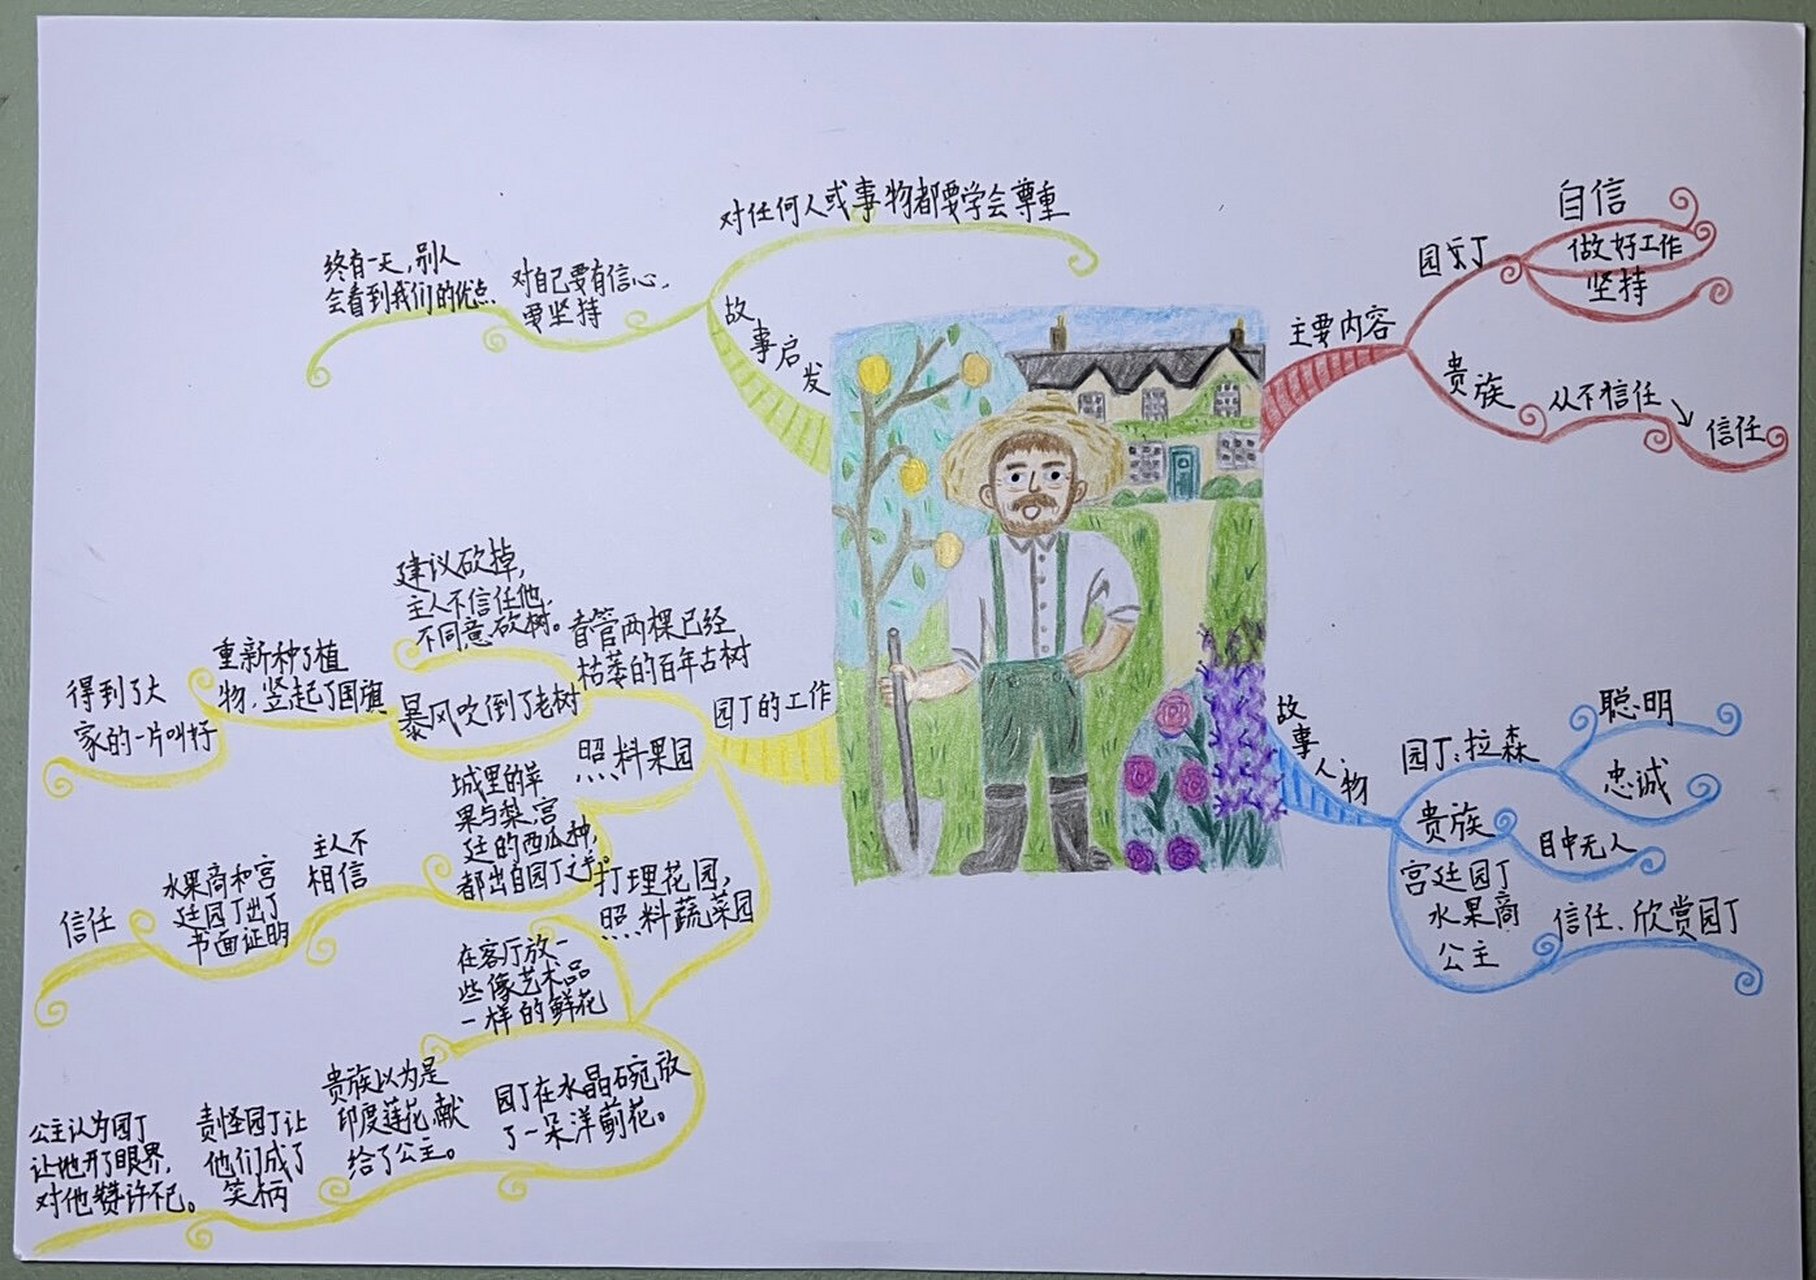 主要内容
园丁
自信
做好工作
坚持
贵族
从不信任
信任
故事人物
园丁:拉森
聪明
忠诚
贵族
目中无人
宫廷园丁
水果商
公主
信任、欣赏园丁
园丁的工作
看管两棵已经
枯萎的百年古树
建议砍掉,
主人不信任他,
不同意砍树。
暴风吹倒了老树
重新种了植
物,竖起了国旗
得到了大
家的一片叫好
照料果园
城里的苹
果与梨,宫
廷的西瓜种,
都出自园丁之手。
主人不
相信
水果商和宫
廷园丁出了
书面证明
信任
打理花园,
照料蔬菜园
在客厅放一
些像艺术品
一样的鲜花
园丁在水晶碗放
了一朵洋蓟花。
贵族以为是
印度莲花,献
给了公主。
责怪园丁让
他们成了
笑柄
公主认为园丁
让她开了眼界,
对他赞许不已。
故事启发
对任何人或事物都要学会尊重
对自己要有信心,
要坚持
终有一天,别人
会看到我们的优点.